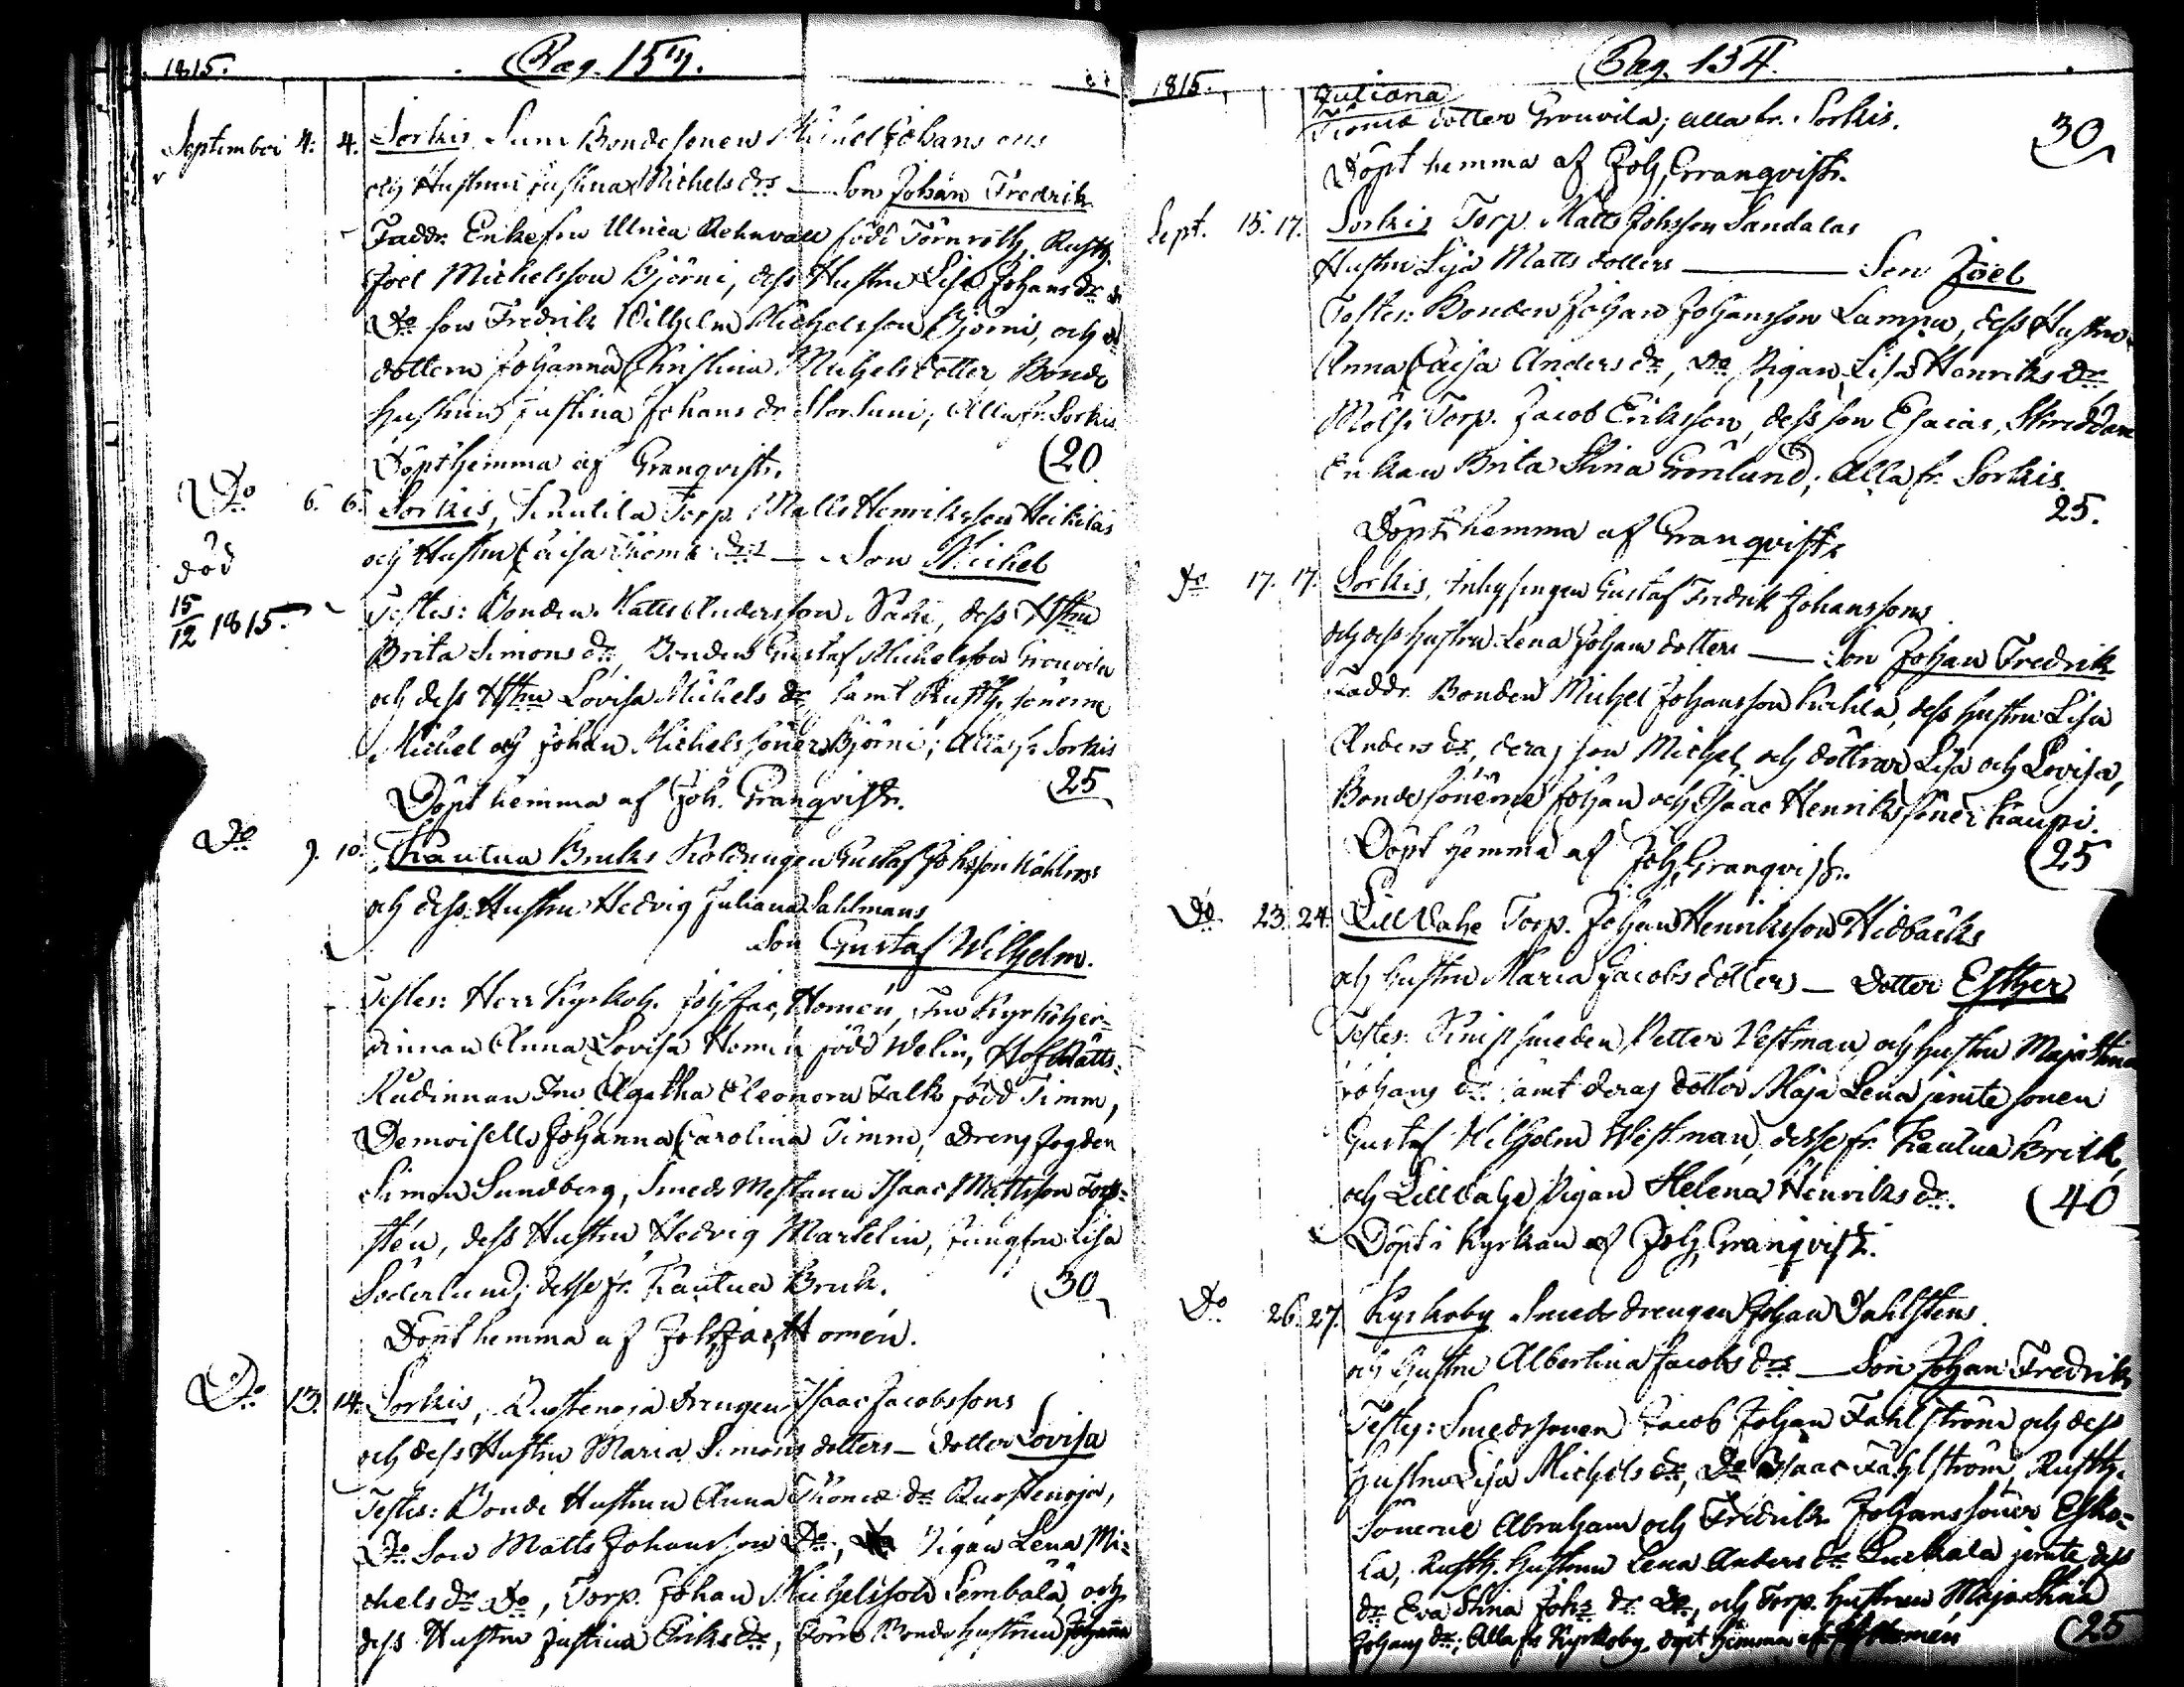 1815. Pag. 153.
September 4. 4. Sorkis Suni Bondesonen Michel Johanssons
och Hustrus Justina Michels drs — Son Johan Fredrik
Faddr. Enkefru Ulrica Rehnvall född Törnroth, Rusth.
Joel Michelsson Björni, dess Hustru Lisa Johans dr
Do son Fredrik Wilhelm Michelsson Björni, och
dottern Johanna Christina Michelsdotter Bonde
hustrun Justina Johans dr Storsuni; Alla fr. Sorkis.
Döpt hemma af Granqvist. (20
Do 6. 6. Sorkis, Torp. Matts Henriksson Heikilas
och Hustru Caisa Thomæ drs — Son Michel
död
15/12 1815.
Testes: Bonden Matts Andersson Saki, dess Hstru
Brita Simons dr, Bonden Gustaf Michelsson Grouvila
och dess Hstru Lovisa Michels dr samt Rusth. sönerne
Michel och Johan Michelssöner Björni; Alla fr Sorkis
Döpt hemma af Joh. Granqvist. (25
Do 9. 10. Kautua Bruks Koldrengen Gustaf Johsson
och dess Hustru Hedvig Juliana Sahlmans
Son Gustaf Wilhelm.
Testes: Herr Kyrkoh. Joh. Jac. Homén, Fru Kyrkoher-
dinnan Anna Lovisa Homén född Welin, HofRätts-
Rådinnan Fru Agatha Eleonora Falk född Timm,
Demoiselle Johanna Carolina Timm, Drengfogden
Simon Sundberg, Smeds Mestaren Isaac Mattsson Torp-
stén, dess Hustru Hedvig Martelin, Jungfru Lisa
Söderlund; desse fr. Kautua Bruk. (30
Döpt hemma af Joh. Jac. Homén.
Do 13. 14. Sorkis, Ruostenoja Drengen Isaac Jacobssons
och dess Hustru Maria Simons dotters — dotter Lovisa
Testes: Bonde Hustrun Anna Thomæ dr Ruostenoja,
Do Son Matts Johansson Do, Pigan Lena Mi-
chels dr Do, Torp. Johan Michelsson Sembala och
dess Hustru Justina Eriks dr, Bonde hustrun Johanna
1815. Pag. 154.
Juliana
Thomæ dotter Grouvila; alla fr. Sorkis. 30
Döpt hemma af Joh. Granqvist.
Sept. 15. 17. Sorkis Torp. Matts Johsson Sandalas
Hustru Lisa Matts dotters — Son Joel
Testes: Bonden Johan Johansson Lampu, dess Hustru
Anna Caisa Anders dr, Do Pigan Lisa Henriks dr
Torp. Jacob Eriksson, dess son Esaias, Skreddare
Enkan Brita Stina Grönlund; Alla fr. Sorkis.
25.
Döpt hemma af Granqvist.
Do 17. 17. Sorkis, Inhysingen Gustaf Fredrik Johanssons
och dess hustru Lena Johans dotters — Son Johan Fredrik
Faddr. Bonden Michel Johansson, dess hustru Lisa
Anders dr, deras son Michel, och döttrar Lisa och Lovisa,
Bondesönerne Johan och Isaac Henrikssöner Kauppi.
Döpt hemma af Joh. Granqvist. (25
Do 23. 24. Lill Vahe Torp. Johan Henriksson Hidbäcks
och hustru Maria Jacobs dotters — Dotter Esther
Testes: Knipsmeden Petter Vestman och hustru Maja Stina
Johans dr samt deras dotter Maja Lena jemte sonen
Gustaf Wilhelm Westman, desse fr. Kautua Bruk,
och Lillvahe Pigan Helena Henriks dr. (40
Döpt i Kyrkan af Joh. Granqvist.
Do 26. 27. Kyrkoby Smedsdrengen Johan Dahlstens
och hustru Albertina Jacobs drs — Son Johan Fredrik
Testes: Smedssonen Jacob Johan Fahlström och dess
hustru Lisa Michels dr, Do Isaac Fahlström, Rusth.
Sönerne Abraham och Fredrik Johanssöner Esko-
la, Rusth. hustrun Lena Anders dr jemte dess
dr Eva Stina Johs dr Do, och Torp. hustrun Maja Stina
Johans dr; Alla fr Kyrkoby, döpt hemma af Homén (25